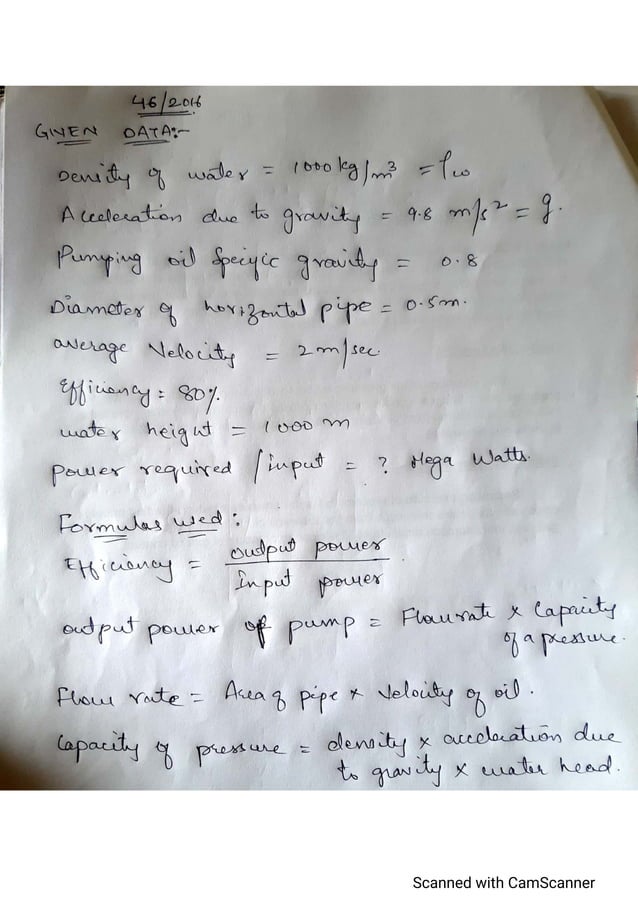 46/2016
GIVEN DATA:-
Density of water = 1000 kg/m³ = ρw
Acceleration due to gravity = 9.8 m/s² = g.
Pumping oil specific gravity = 0.8
Diameter of horizontal pipe = 0.5m.
average Velocity = 2m/sec.
Efficiency = 80%.
water height = 1000 m
power required / input = ? Mega Watts.
Formulas used :
Efficiency = output power / Input power
output power of pump = Flowrate × Capacity
of a pressure.
Flow rate = Area of pipe × Velocity of oil.
Capacity of pressure = density × acceleration due
to gravity × water head.
Scanned with CamScanner